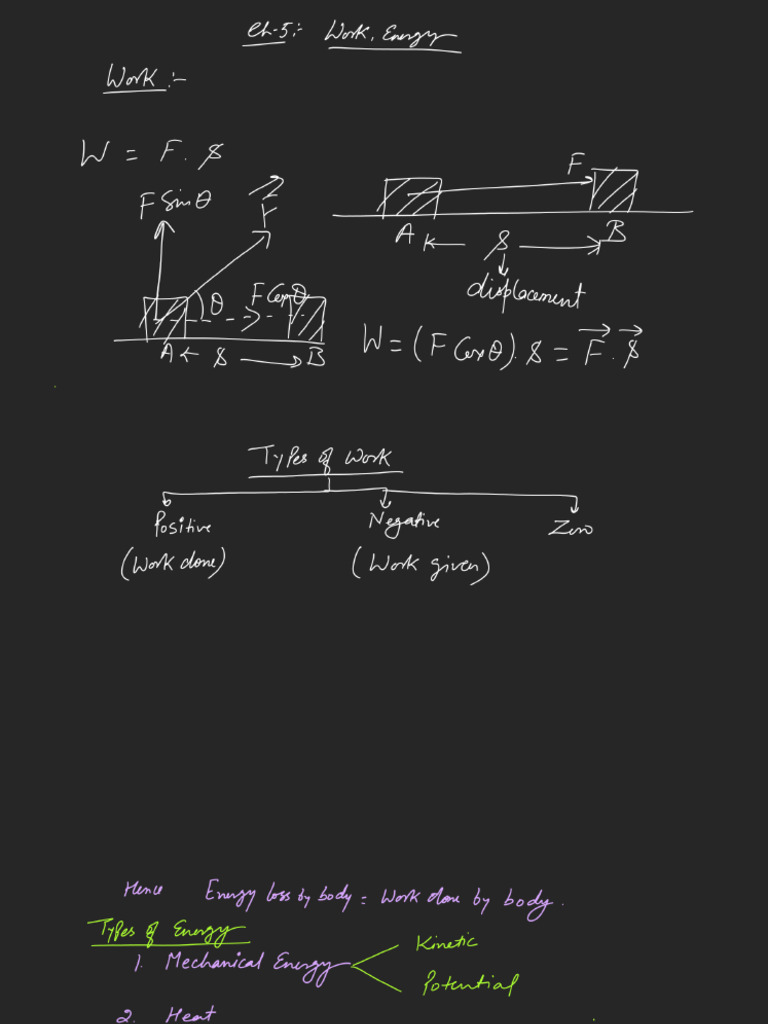 Ch-5:- Work, Energy
Work:-
W = F. S
F Sinθ
F
F
θ
F Cosθ
A
S
B
A
S
B
displacement
W = (F Cosθ). S = F. S
Types of Work
Positive
Negative
Zero
(Work done)
(Work given)
Hence Energy loss by body = Work done by body.
Types of Energy
1. Mechanical Energy
Kinetic
Potential
2. Heat